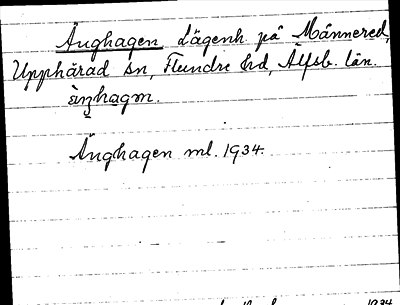 Änghagen Lägenh. på Männered,
Upphärad sn, Flundre hd, Älfsb. län.
Änghagen ml. 1934.
1934